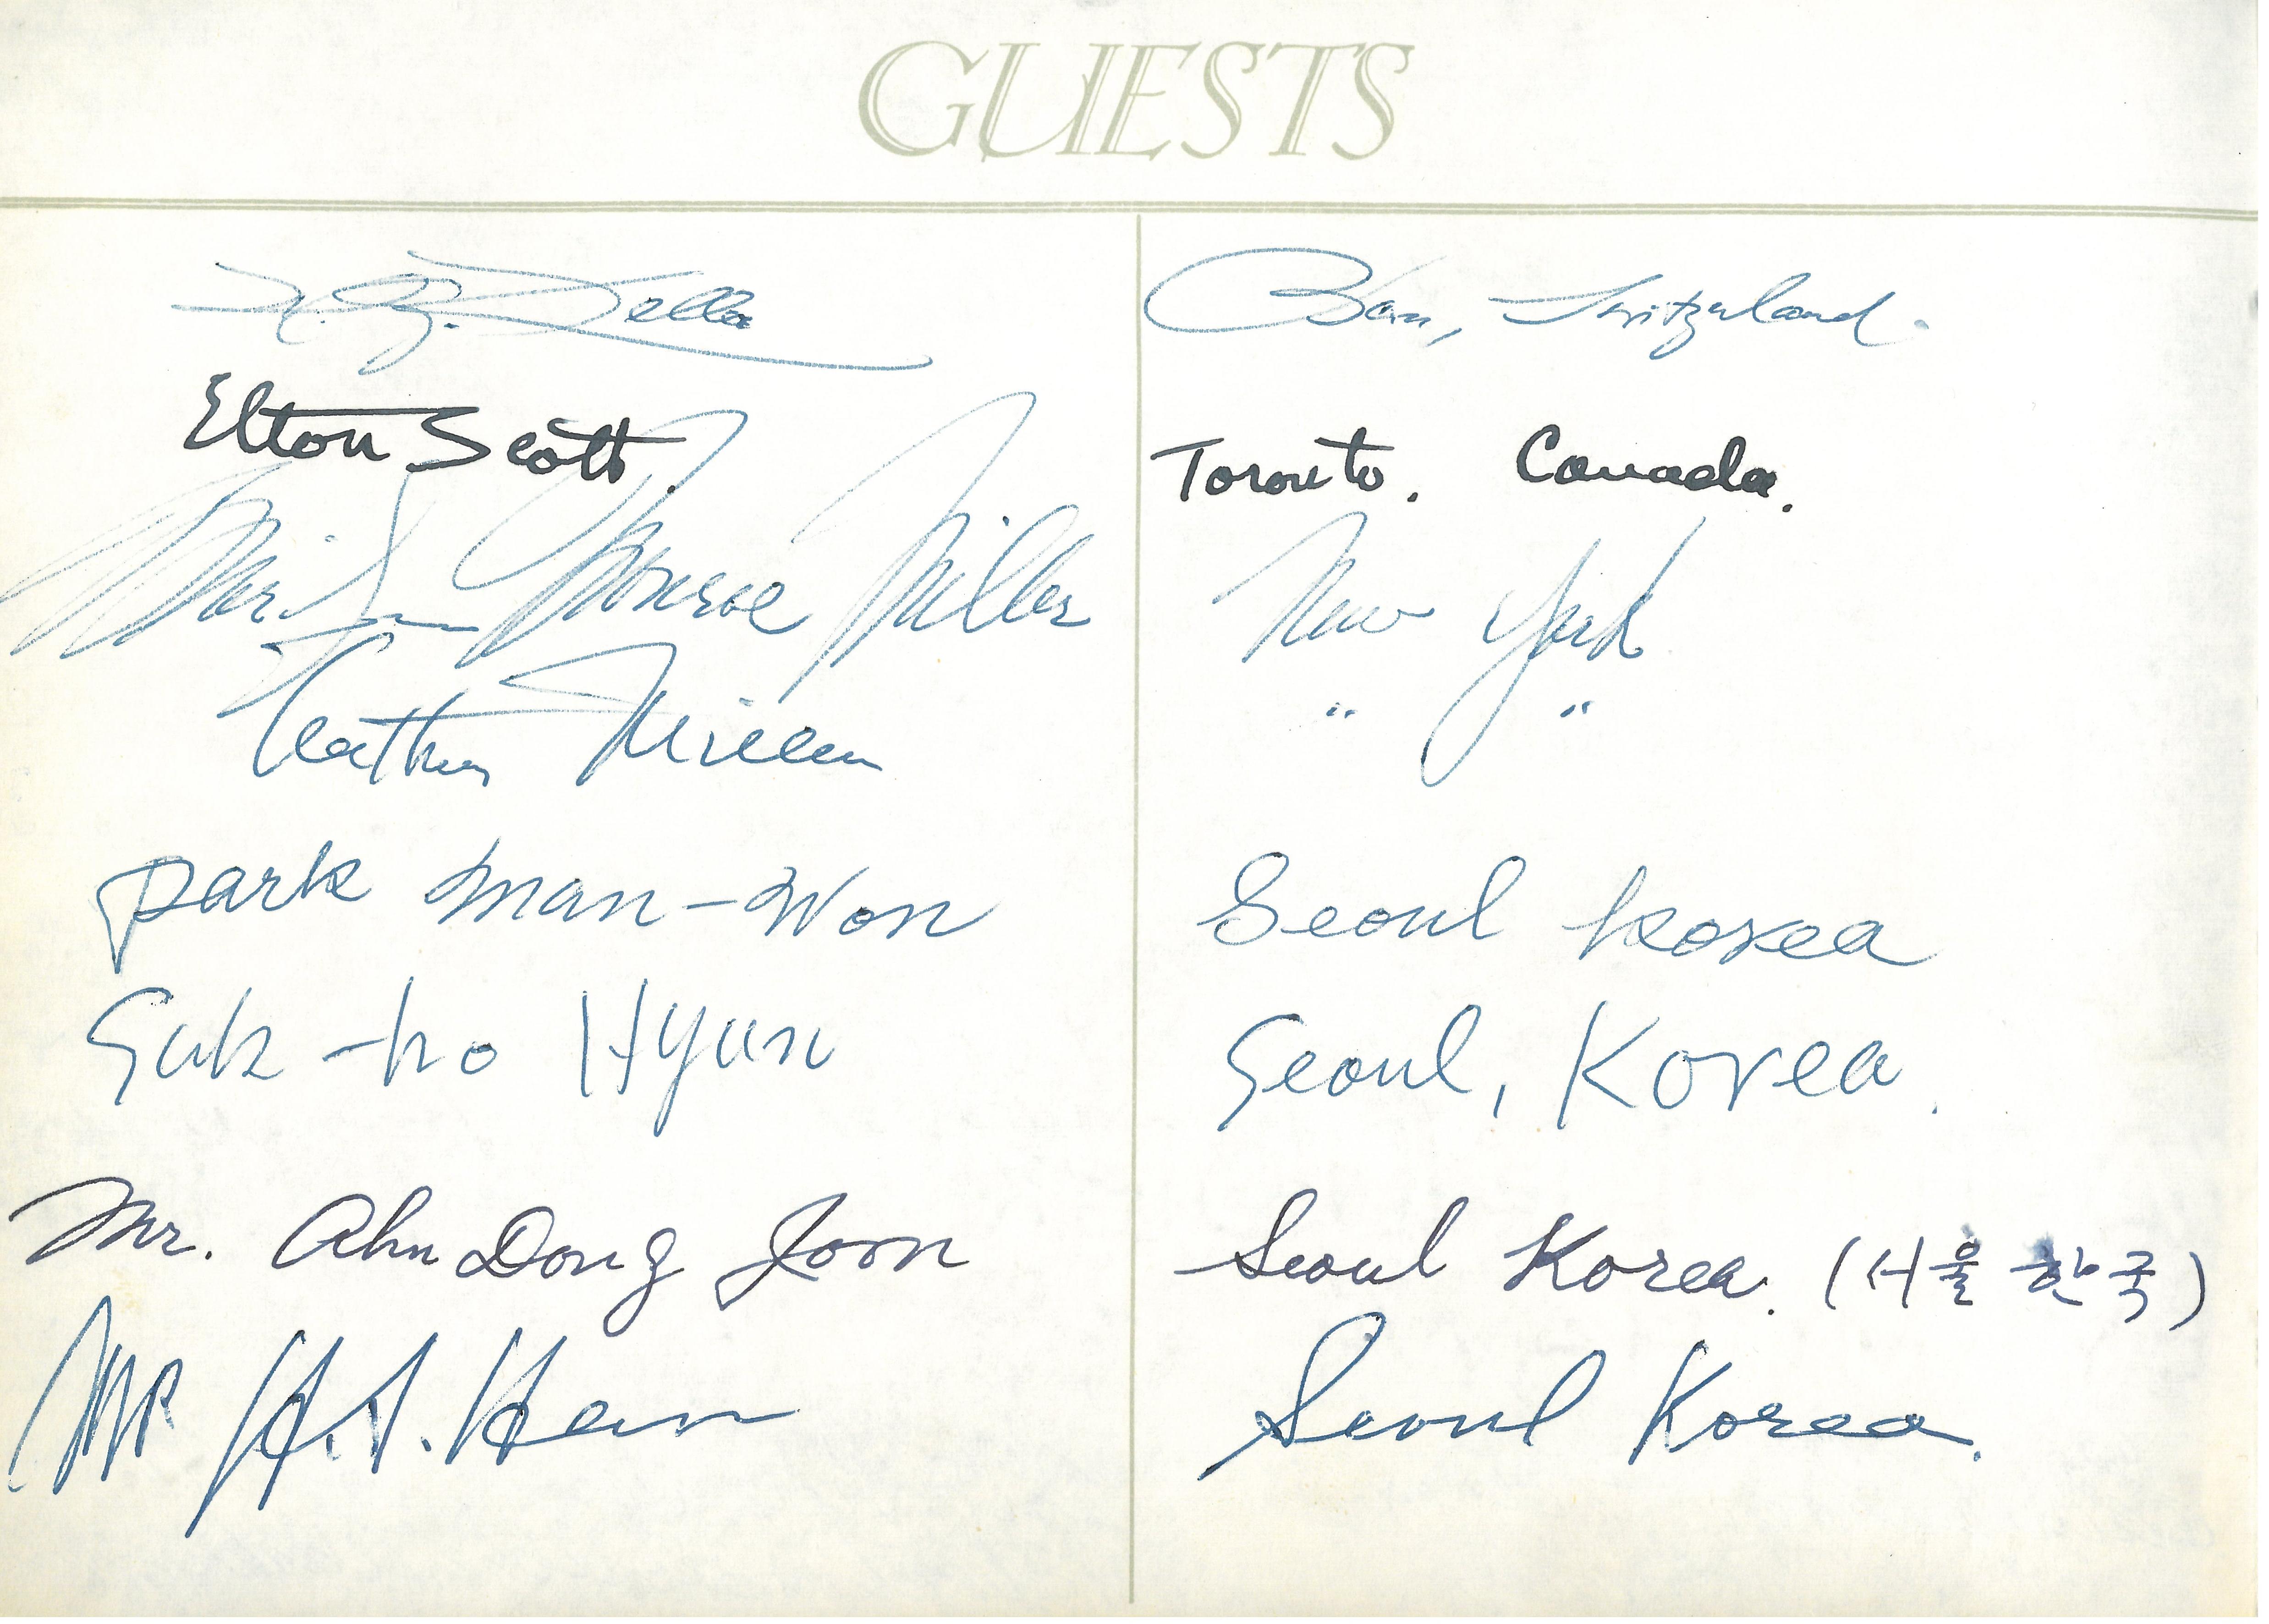 GUESTS
Bern, Switzerland.
Elton Scott. Toronto. Canada.
Monroe Miller New York
" "
Park Man-Won Seoul Korea
Suk-ho Hyun Seoul, Korea.
Mr. Ahn Dong Joon Seoul Korea. (서울 한국)
MR H.S. Han Seoul Korea.